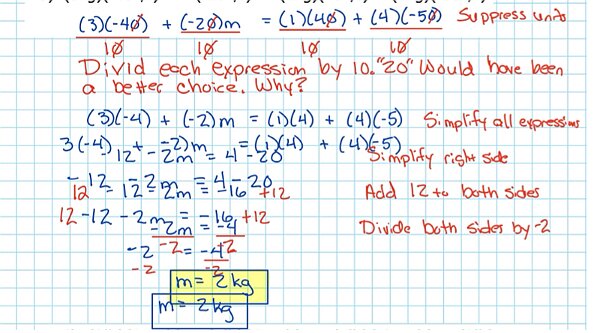 (3)(-40) + (-20)m = (1)(40) + (4)(-50) Suppress units
10 10 10 10
Divid each expression by 10. "20" Would have been
a better choice. Why?
(3)(-4) + (-2)m = (1)(4) + (4)(-5) Simplify all expressions
3(-4) + -2)m = (1)(4) + (4)(-5)
-12 - 2m = 4 - 20 Simplify right side
-12 - 2m = 4 - 20
12 -12 - 2m = -16 +12 Add 12 to both sides
12 -12 - 2m = -16 +12
-2m = -4 Divide both sides by -2
-2 -2 = -4 +2
-2 -2
m = 2 kg
m = 2 kg